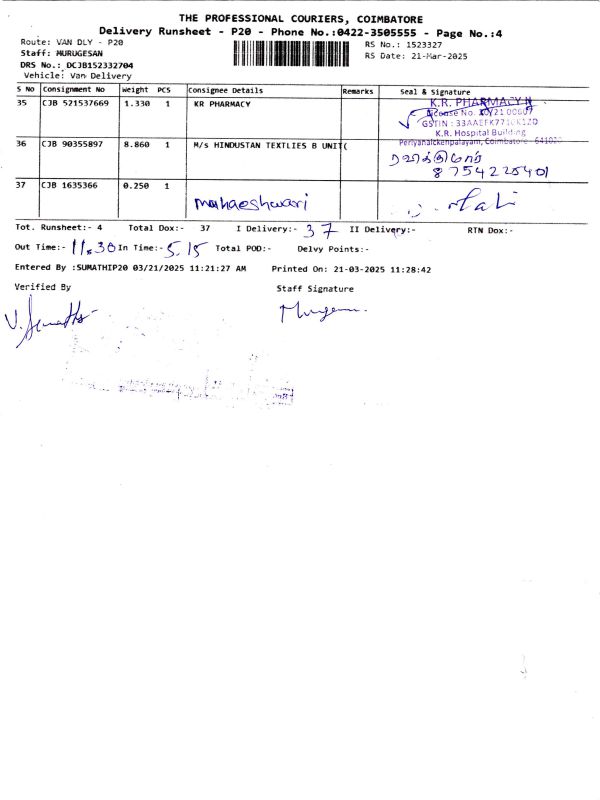 THE PROFESSIONAL COURIERS, COIMBATORE
Delivery Runsheet - P20 - Phone No.:0422-3505555 - Page No.:4
Route: VAN DLY - P20
RS No.: 1523327
Staff: MURUGESAN
RS Date: 21-Mar-2025
DRS No.: DCJB152332704
Vehicle: Van Delivery
S No Consignment No Weight PCS Consignee Details Remarks Seal & Signature
35 CJB 521537669 1.330 1 KR PHARMACY
K.R. PHARMACY
License No.
GSTIN :
K.R. Hospital Building
Periyanaickenpalayam, Coimbatore
36 CJB 90355897 8.860 1 M/s HINDUSTAN TEXTLIES B UNIT(
37 CJB 1635366 0.250 1
Mahaeshwari
Tot. Runsheet:- 4 Total Dox:- 37 I Delivery:- 37 II Delivery:- RTN Dox:-
Out Time:- 11.30 In Time:- 5.15 Total POD:- Delvy Points:-
Entered By :SUMATHIP20 03/21/2025 11:21:27 AM Printed On: 21-03-2025 11:28:42
Verified By Staff Signature